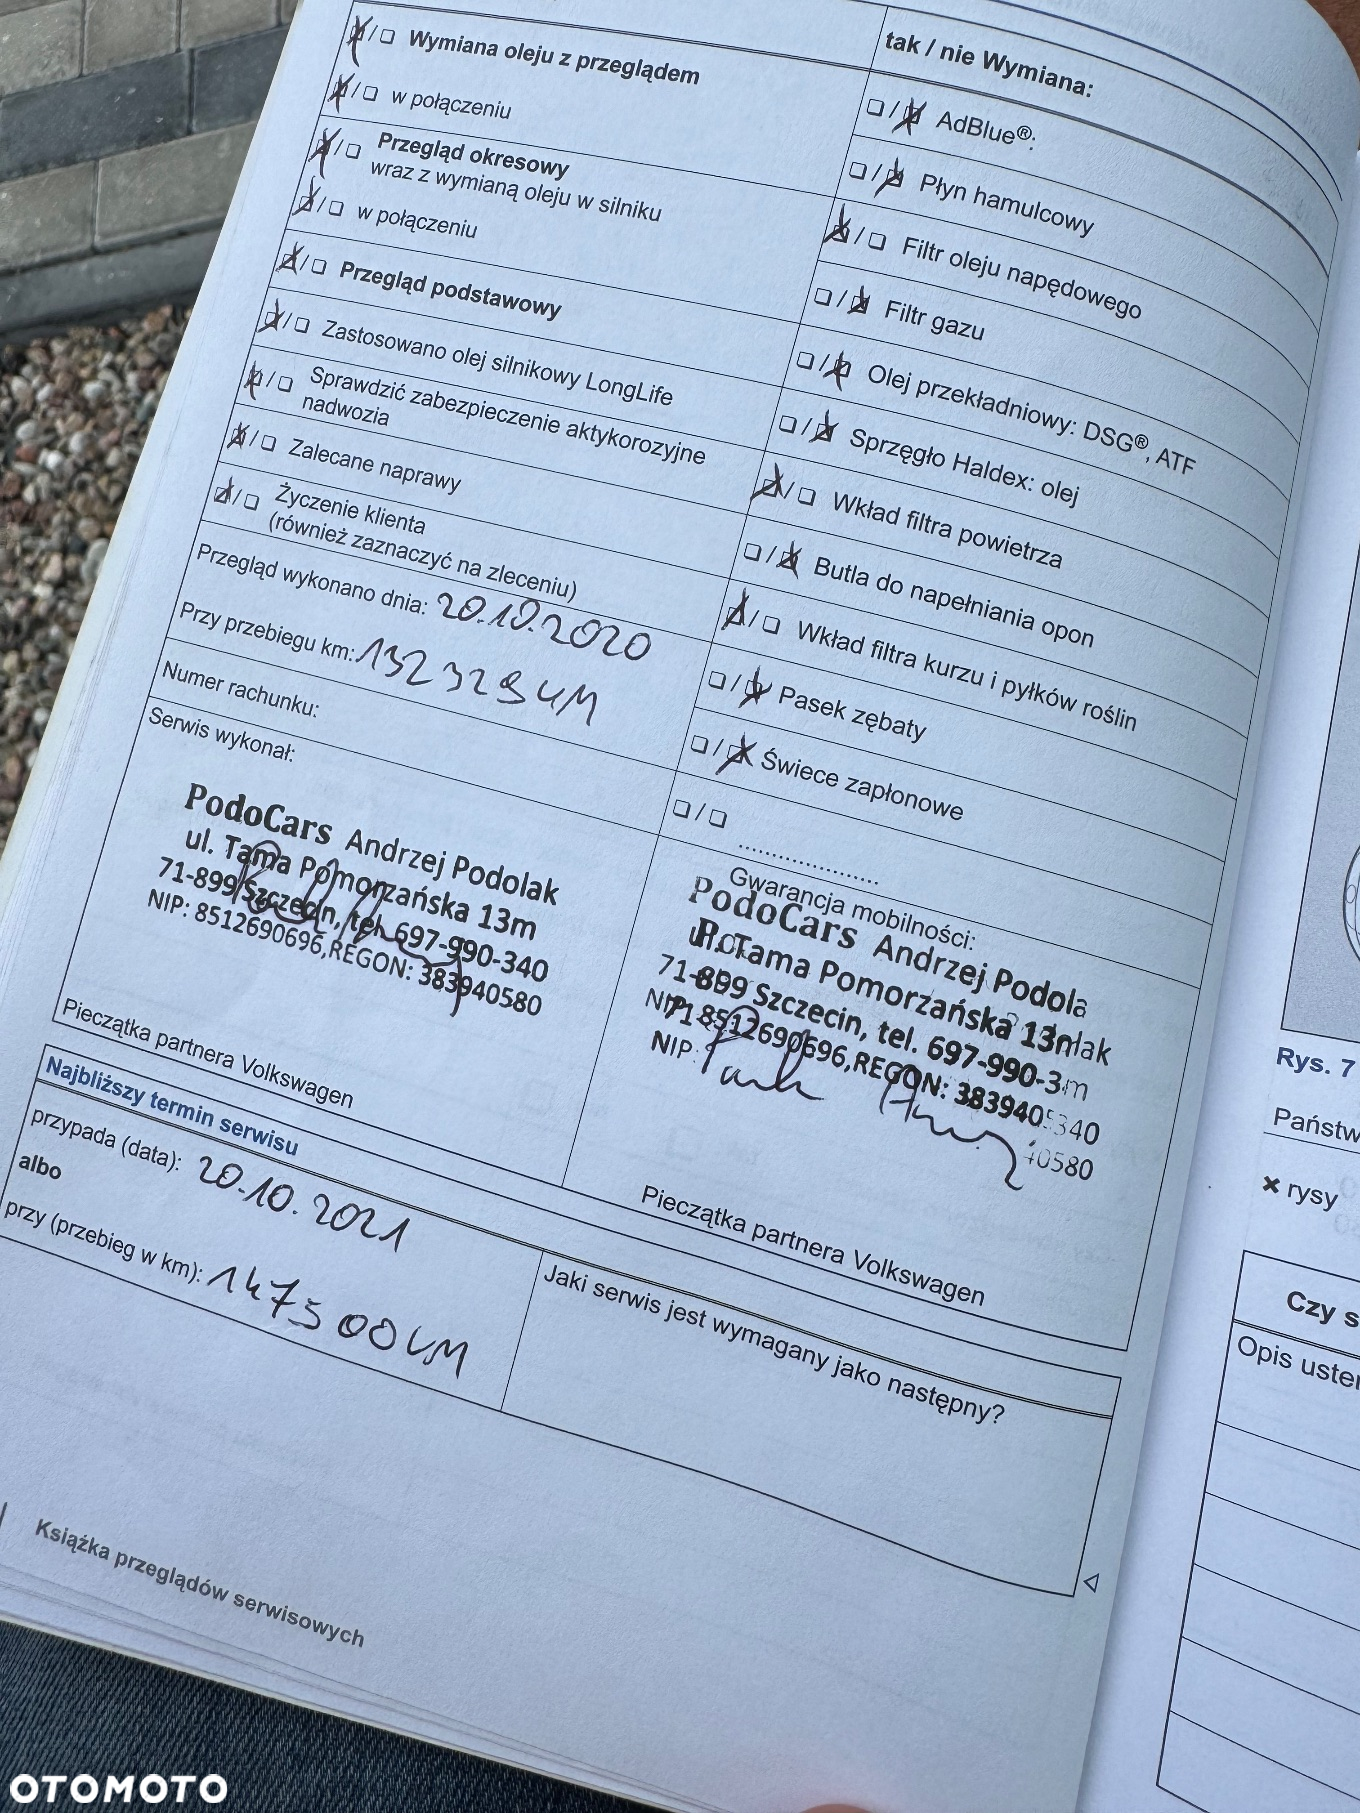 Wymiana oleju z przeglądem
w połączeniu
Przegląd okresowy
wraz z wymianą oleju w silniku
w połączeniu
Przegląd podstawowy
Zastosowano olej silnikowy LongLife
Sprawdzić zabezpieczenie aktykorozyjne
nadwozia
Zalecane naprawy
Życzenie klienta
(również zaznaczyć na zleceniu)
Przegląd wykonano dnia: 20.10.2020
Przy przebiegu km: 132 329 KM
Numer rachunku:
Serwis wykonał:
PodoCars Andrzej Podolak
ul. Tama Pomorzańska 13m
71-899 Szczecin, tel. 697-990-340
NIP: 8512690696,REGON: 383940580
Pieczątka partnera Volkswagen
tak / nie Wymiana:
AdBlue®:
Płyn hamulcowy
Filtr oleju napędowego
Filtr gazu
Olej przekładniowy: DSG®, ATF
Sprzęgło Haldex: olej
Wkład filtra powietrza
Butla do napełniania opon
Wkład filtra kurzu i pyłków roślin
Pasek zębaty
Świece zapłonowe
Gwarancja mobilności:
PodoCars Andrzej Podola
Tama Pomorzańska 13m
71-899 Szczecin, tel. 697-990-3
NIP: 8512690696,REGON: 383940
NIP:
Pieczątka partnera Volkswagen
Najbliższy termin serwisu
przypada (data): 20.10.2021
albo
przy (przebieg w km): 147300 KM
Jaki serwis jest wymagany jako następny?
Książka przeglądów serwisowych
Rys. 7
Państw
× rysy
Czy s
Opis uster
OTOMOTO